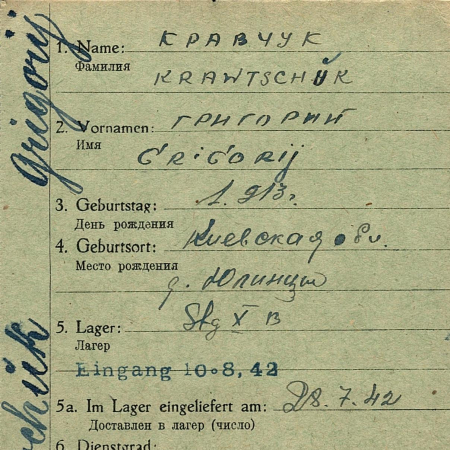 Grigorij
1. Name: КРАВЧУК
Фамилия
KRAWTSCHŬK
2. Vornamen: ГРИГОРИЙ
Имя
GRIGORIJ
3. Geburtstag: 1.913г.
День рождения
4. Geburtsort: Киевская обл.
Место рождения
д. Юлинцы
5. Lager: Stlg X B
Лагер
Eingang 10.8,42
5a. Im Lager eingeliefert am: 28.7.42
Доставлен в лагер (число)
6. Dienstgrad: